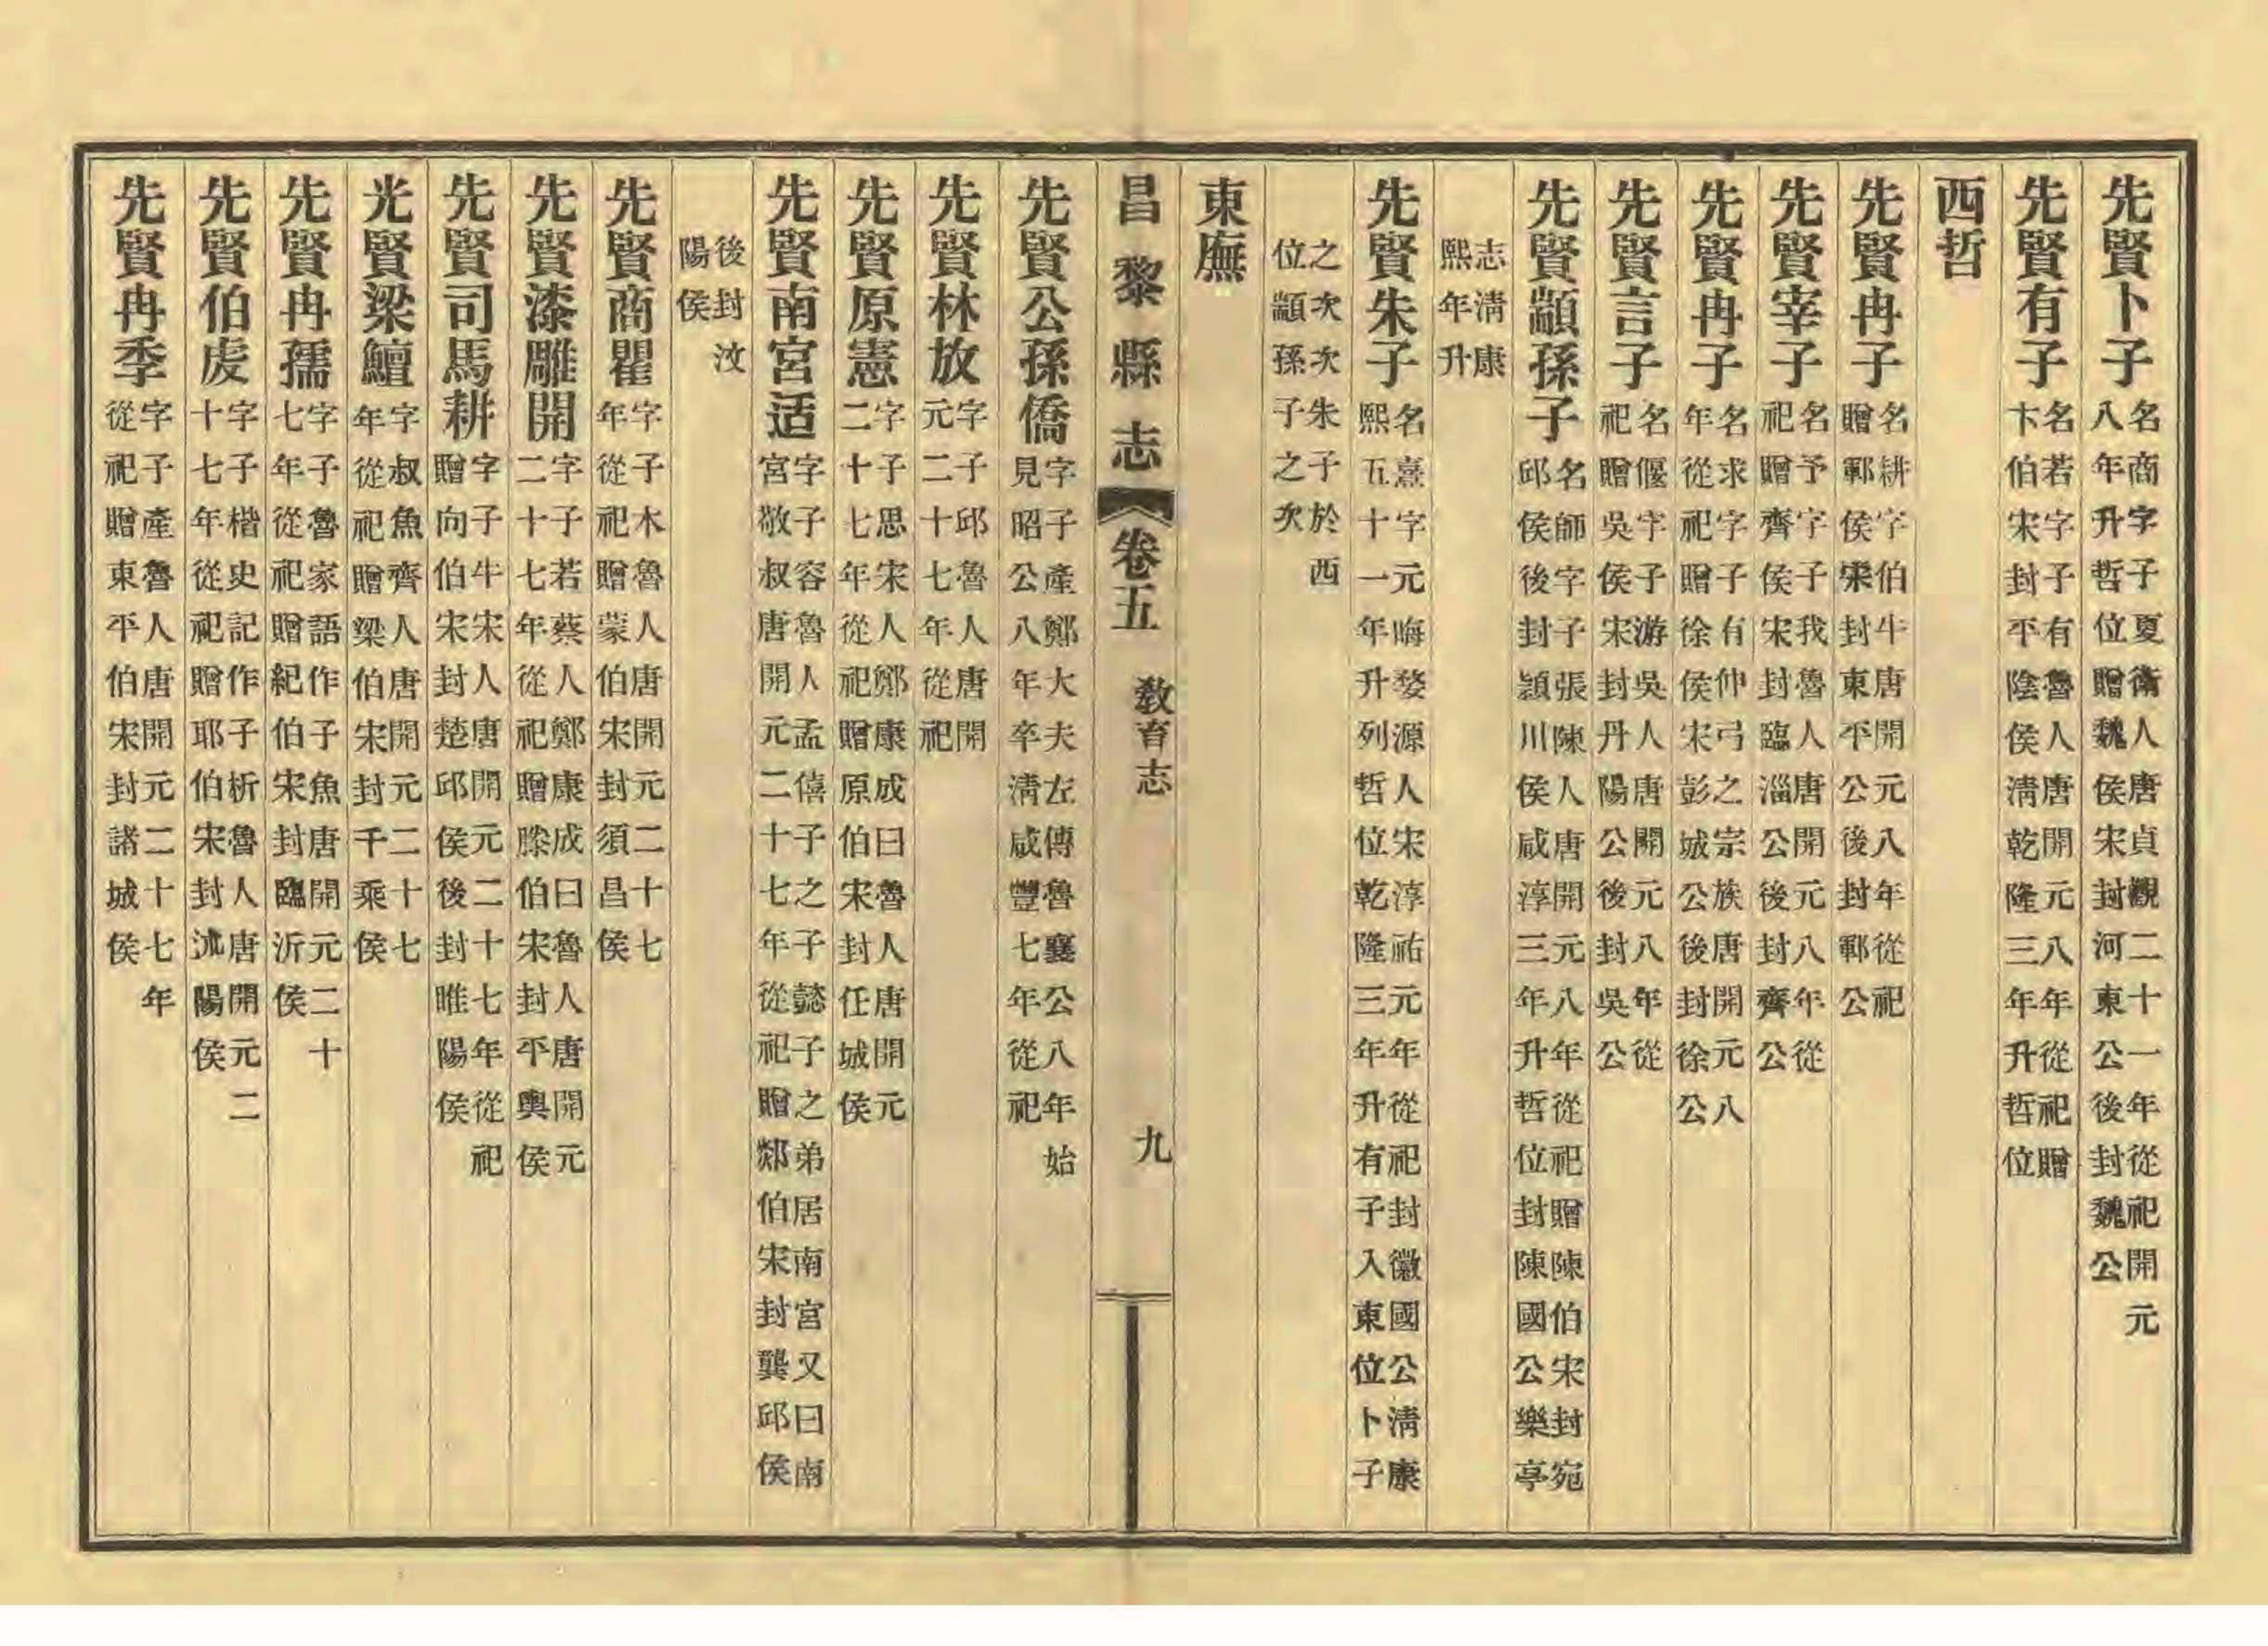 先賢卜子名商字子夏衛人唐貞觀二十一年從祀開元八年升哲位贈魏侯宋封河東公後封魏公
先賢有子名若字子有魯人唐開元八年從祀贈卞伯宋封平陰侯淸乾隆三年升哲位
西哲
先賢冉子名耕字伯牛唐開元八年從祀贈鄆侯宋封東平公後封鄆公
先賢宰子名予字子我魯人唐開元八年從祀贈齊侯宋封臨淄公後封齊公
先賢冉子名求字子有仲弓之宗族唐開元八年從祀贈徐侯宋彭城公後封徐公
先賢言子名偃字子游吳人唐開元八年從祀贈吳侯宋封丹陽公後封吳公
先賢顓孫子名師字子張陳人唐開元八年從祀贈陳伯宋封宛邱侯後封潁川侯咸淳三年升哲位封陳國公樂亭
志淸康熙年升
先賢朱子名熹字元晦婺源人宋淳祐元年從祀封徽國公淸康熙五十一年升列哲位乾隆三年升有子入東位卜子
之次次朱子於西位顓孫子之次
東廡
昌黎縣志 卷五 教育志 九
先賢公孫僑字子產鄭大夫左傳魯襄公八年始見昭公八年卒淸咸豐七年從祀
先賢林放字子邱魯人唐開元二十七年從祀
先賢原憲字子思宋人鄭康成曰魯人唐開元二十七年從祀贈原伯宋封任城侯
先賢南宮适字子容魯人孟僖子之子懿子之弟居南宮又曰南宮敬叔唐開元二十七年從祀贈郯伯宋封龔邱侯
後封汶陽侯
先賢商瞿字子木魯人唐開元二十七年從祀贈蒙伯宋封須昌侯
先賢漆雕開字子若蔡人鄭康成曰魯人唐開元二十七年從祀贈滕伯宋封平輿侯
先賢司馬耕字子牛宋人唐開元二十七年從祀贈向伯宋封楚邱侯後封睢陽侯
光賢梁鱣字叔魚齊人唐開元二十七年從祀贈梁伯宋封千乘侯
先賢冉孺字子魯家語作子魚唐開元二十七年從祀贈紀伯宋封臨沂侯
先賢伯虔字子楷史記作子析魯人唐開元二十七年從祀贈耶伯宋封沭陽侯
先賢冉季字子產魯人唐開元二十七年從祀贈東平伯宋封諸城侯